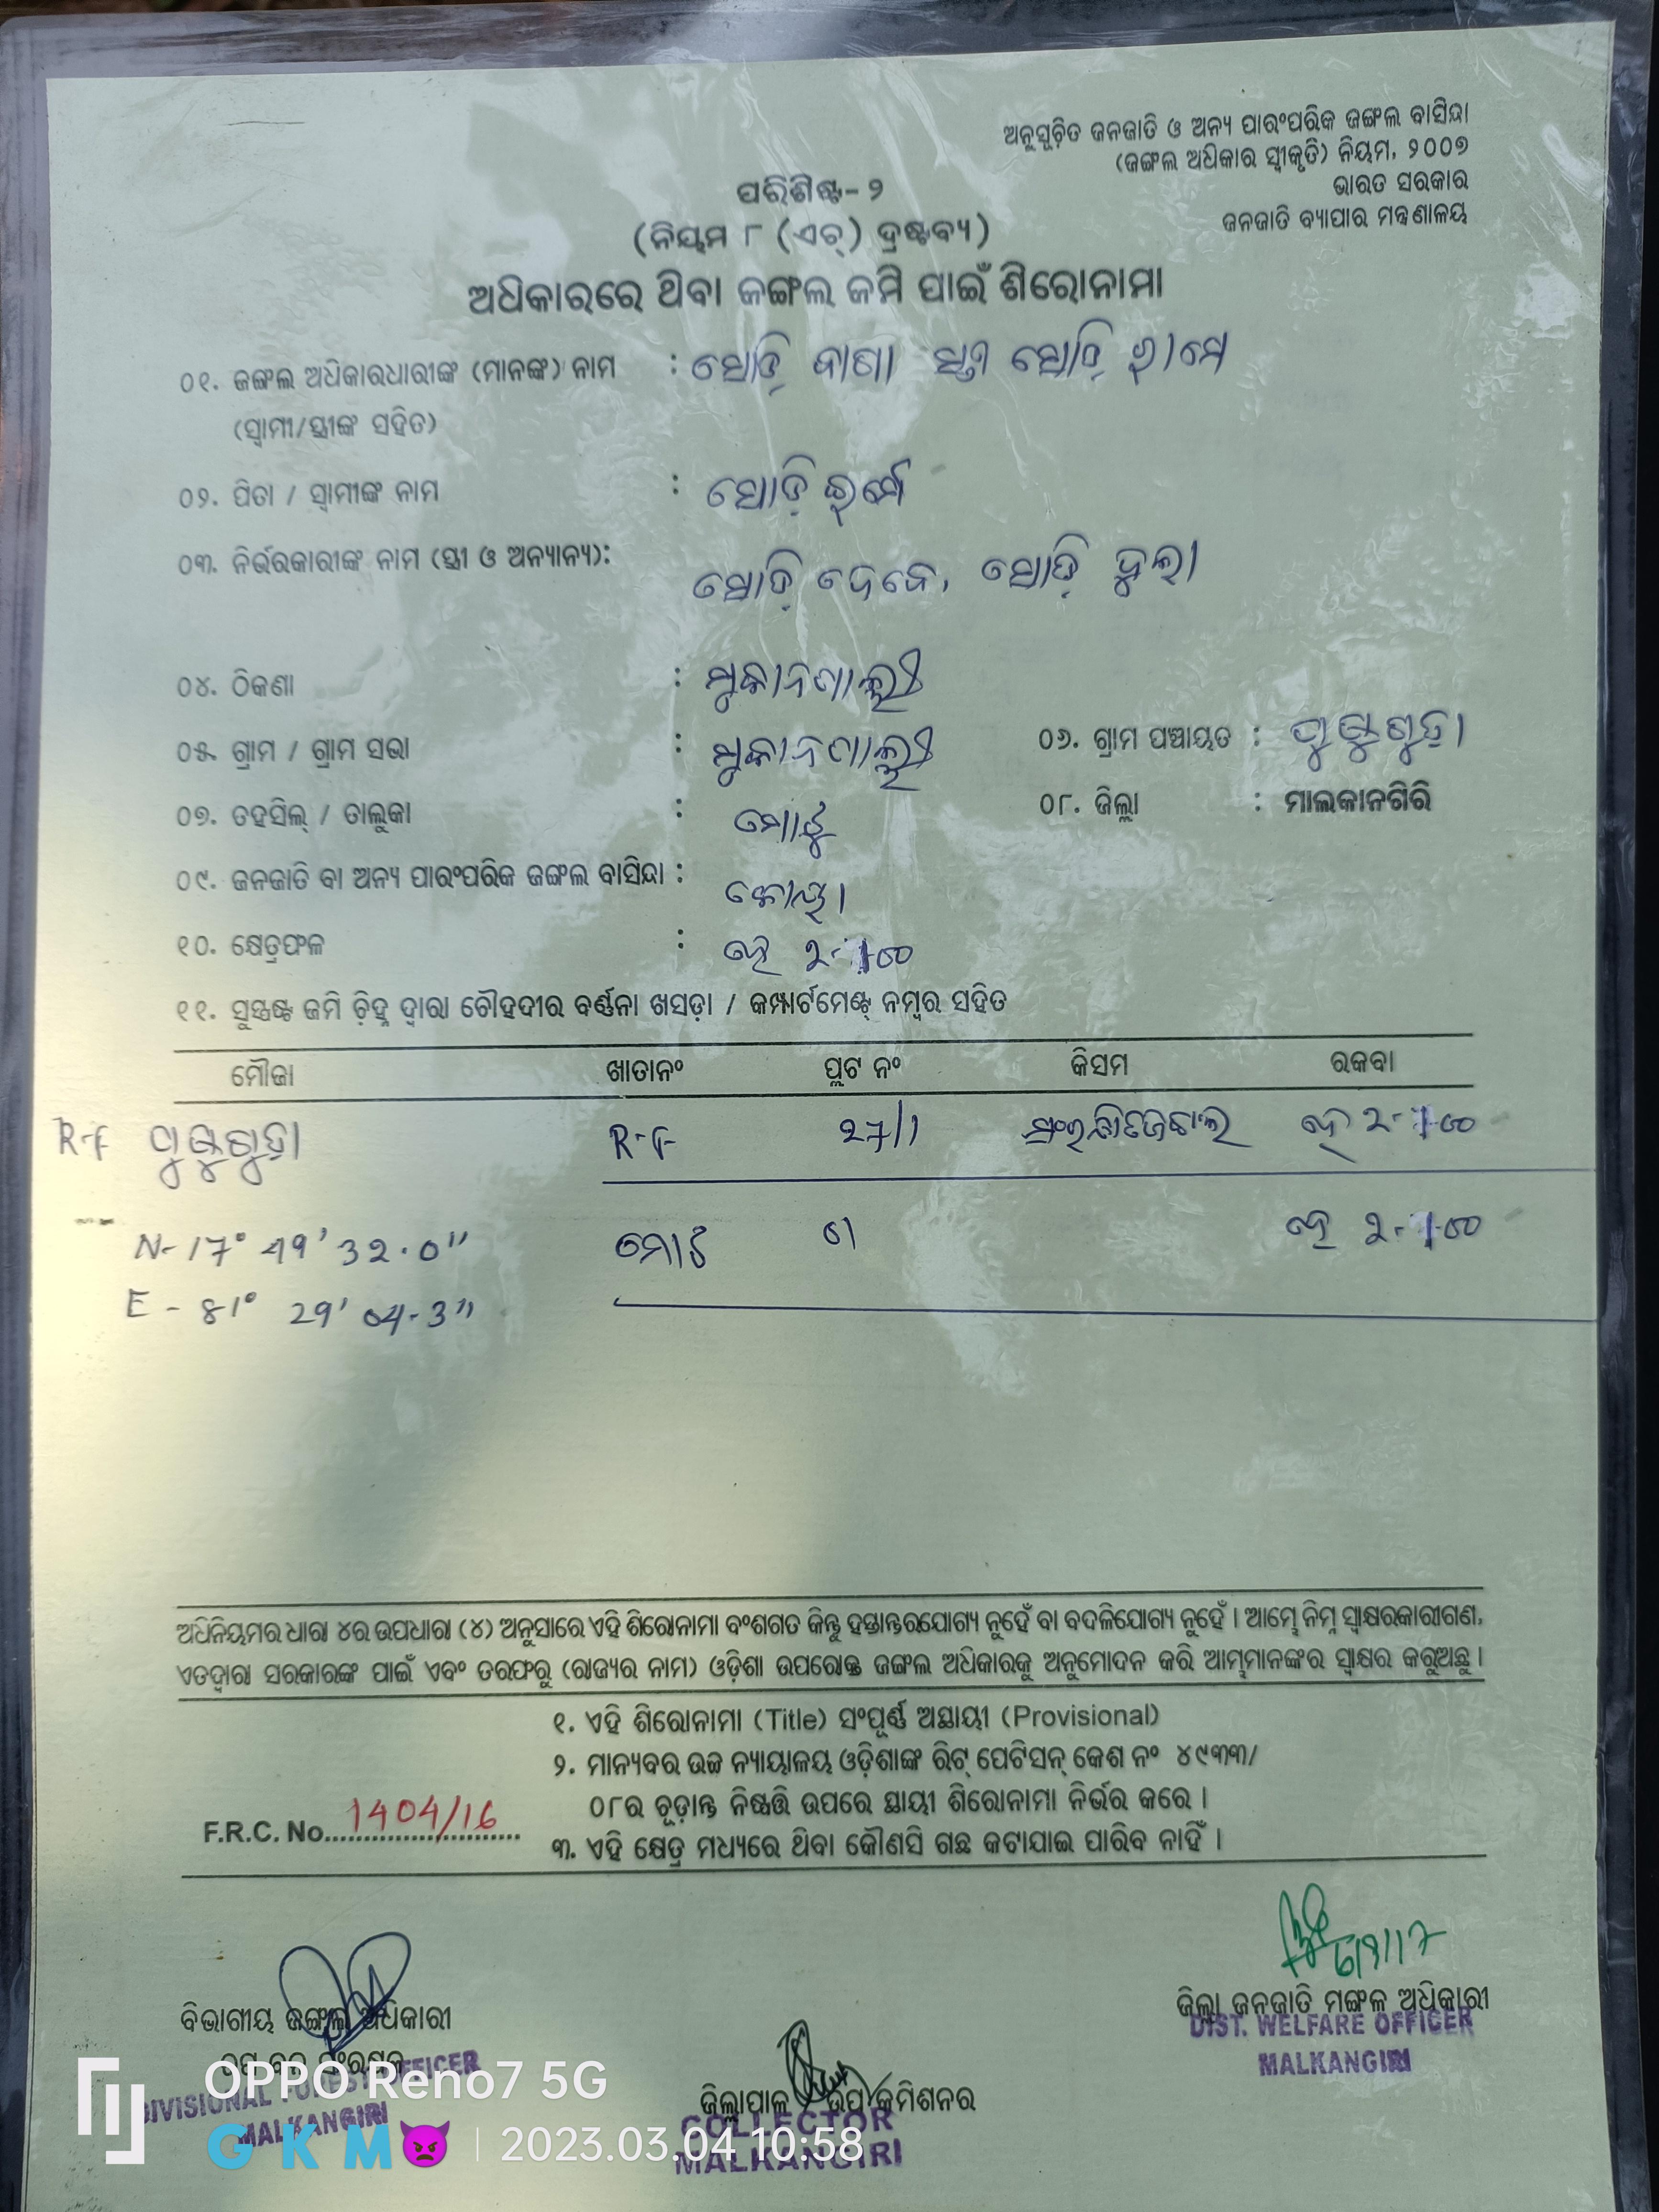 ଅନୁସୂଚିତ ଜନଜାତି ଓ ଅନ୍ୟ ପାରଂପରିକ ଜଙ୍ଗଲ ବାସିନ୍ଦା
(ଜଙ୍ଗଲ ଅଧିକାର ସ୍ୱୀକୃତି) ନିୟମ, ୨୦୦୭
ଭାରତ ସରକାର
ଜନଜାତି ବ୍ୟାପାର ମନ୍ତ୍ରଣାଳୟ
ପରିଶିଷ୍ଟ- ୨
(ନିୟମ ୮ (ଏଚ୍) ଦ୍ରଷ୍ଟବ୍ୟ)
ଅଧିକାରରେ ଥିବା ଜଙ୍ଗଲ ଜମି ପାଇଁ ଶିରୋନାମା
୦୧. ଜଙ୍ଗଲ ଅଧିକାରଧାରୀଙ୍କ (ମାନଙ୍କ) ନାମ :
(ସ୍ୱାମୀ/ସ୍ତ୍ରୀଙ୍କ ସହିତ)
୦୨. ପିତା / ସ୍ୱାମୀଙ୍କ ନାମ :
୦୩. ନିର୍ଭରକାରୀଙ୍କ ନାମ (ସ୍ତ୍ରୀ ଓ ଅନ୍ୟାନ୍ୟ):
୦୪. ଠିକଣା :
୦୫. ଗ୍ରାମ / ଗ୍ରାମ ସଭା : ୦୬. ଗ୍ରାମ ପଞ୍ଚାୟତ :
୦୭. ତହସିଲ୍ / ତାଲୁକା : ମୋଟୁ ୦୮. ଜିଲ୍ଲା : ମାଲକାନଗିରି
୦୯. ଜନଜାତି ବା ଅନ୍ୟ ପାରଂପରିକ ଜଙ୍ଗଲ ବାସିନ୍ଦା : କୋୟା
୧୦. କ୍ଷେତ୍ରଫଳ : ହେ
୧୧. ସୁସ୍ପଷ୍ଟ ଜମି ଚିହ୍ନ ଦ୍ୱାରା ଚୌହଦୀର ବର୍ଣ୍ଣନା ଖସଡ଼ା / କମ୍ପାର୍ଟମେଣ୍ଟ୍ ନମ୍ବର ସହିତ
ମୌଜା ଖାତାନଂ ପ୍ଲଟ ନଂ କିସମ ରକବା
R-F R-F 27/1 ହେ
N- 17° 49' 32.0" ମୋଟ ହେ
E - 81° 29' 04-3"
ଅଧିନିୟମର ଧାରା ୪ର ଉପଧାରା (୪) ଅନୁସାରେ ଏହି ଶିରୋନାମା ବଂଶଗତ କିନ୍ତୁ ହସ୍ତାନ୍ତରଯୋଗ୍ୟ ନୁହେଁ ବା ବଦଳିଯୋଗ୍ୟ ନୁହେଁ । ଆମ୍ଭେ ନିମ୍ନ ସ୍ୱାକ୍ଷରକାରୀଗଣ,
ଏତଦ୍ୱାରା ସରକାରଙ୍କ ପାଇଁ ଏବଂ ତରଫରୁ (ରାଜ୍ୟର ନାମ) ଓଡ଼ିଶା ଉପରୋକ୍ତ ଜଙ୍ଗଲ ଅଧିକାରକୁ ଅନୁମୋଦନ କରି ଆମ୍ଭମାନଙ୍କର ସ୍ୱାକ୍ଷର କରୁଅଛୁ ।
୧. ଏହି ଶିରୋନାମା (Title) ସଂପୂର୍ଣ୍ଣ ଅସ୍ଥାୟୀ (Provisional)
୨. ମାନ୍ୟବର ଉଚ୍ଚ ନ୍ୟାୟାଳୟ ଓଡ଼ିଶାଙ୍କ ରିଟ୍ ପେଟିସନ୍ କେଶ ନଂ ୪୯୩୩/
୦୮ର ଚୂଡ଼ାନ୍ତ ନିଷ୍ପତ୍ତି ଉପରେ ସ୍ଥାୟୀ ଶିରୋନାମା ନିର୍ଭର କରେ ।
F.R.C. No. 1404/16
୩. ଏହି କ୍ଷେତ୍ର ମଧ୍ୟରେ ଥିବା କୌଣସି ଗଛ କଟାଯାଇ ପାରିବ ନାହିଁ ।
ବିଭାଗୀୟ ଜଙ୍ଗଲ ଅଧିକାରୀ
DIVISIONAL FOREST OFFICER
MALKANGIRI
ଜିଲ୍ଲାପାଳ ଉପ କମିଶନର
COLLECTOR
MALKANGIRI
ଜିଲ୍ଲା ଜନଜାତି ମଙ୍ଗଳ ଅଧିକାରୀ
DIST. WELFARE OFFICER
MALKANGIRI
OPPO Reno7 5G
G K M | 2023.03.04 10:58